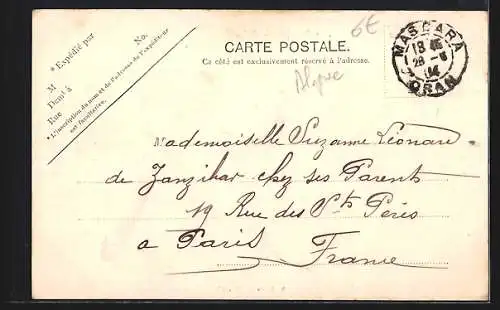 6E
CARTE POSTALE.
Ce côté est exclusivement réservé à l'adresse.
* Expédié par No.
M
Demt à
Rue
* L'inscription du nom et de l'adresse de l'expéditeur
est facultative.
MASCARA
18
28 -5
04
ORAN
Mademoiselle Suzanne Léonard
de Zanzibar chez ses Parents
19 Rue des Sts Pères
à Paris
France